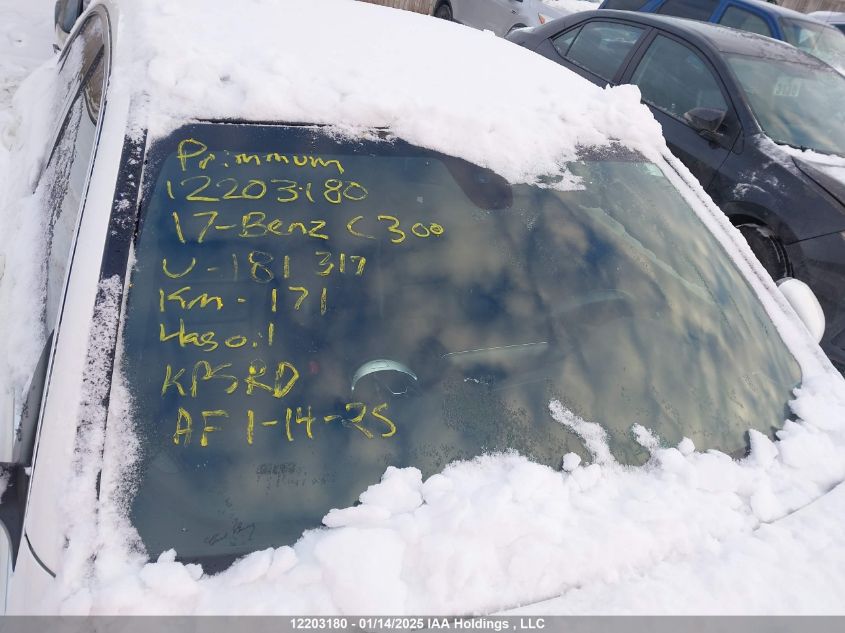 Primmum
12203180
17-Benz C300
U-181317
Km-171
Hasoil
KPSRD
AF 1-14-25
12203180 - 01/14/2025 IAA Holdings , LLC